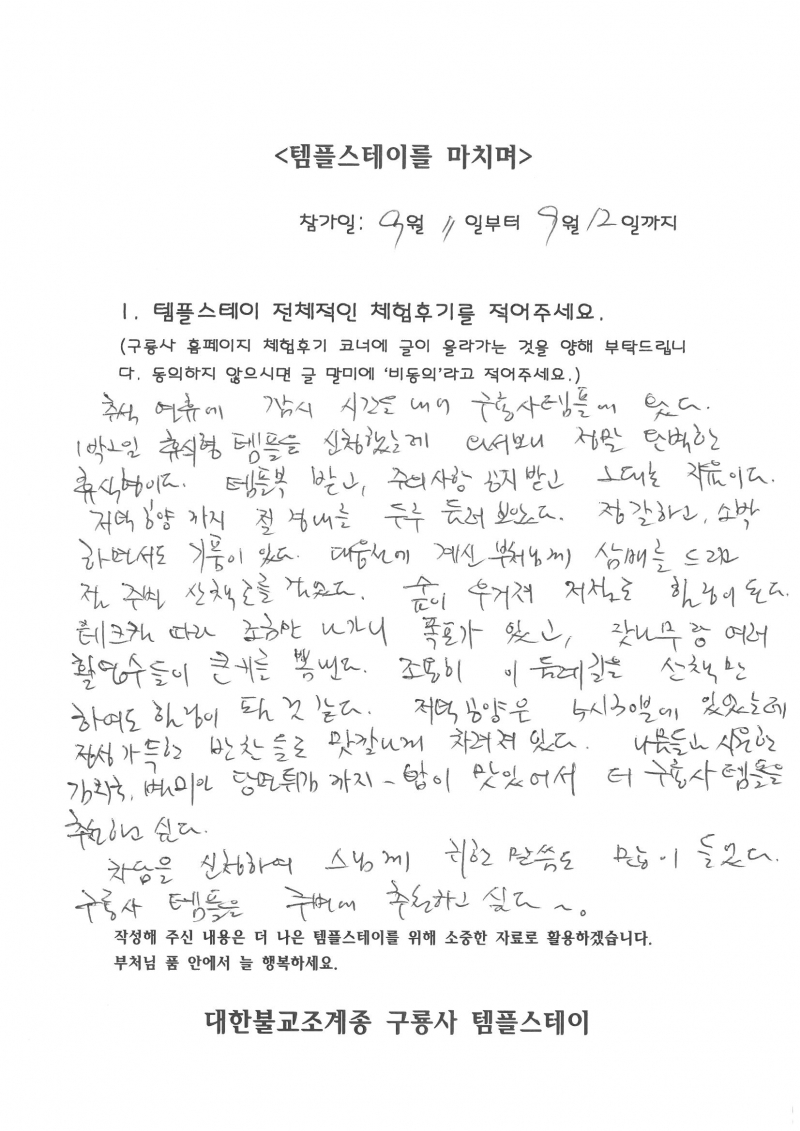 <템플스테이를 마치며>
참가일: 9월 11일부터 9월 12일까지
1. 템플스테이 전체적인 체험후기를 적어주세요.
(구룡사 홈페이지 체험후기 코너에 글이 올라가는 것을 양해 부탁드립니
다. 동의하지 않으시면 글 말미에 '비동의'라고 적어주세요.)
추석 연휴에 잠시 시간을 내어 구룡사템플에 왔다.
1박2일 휴식형 템플을 신청했는데 와서보니 정말 완벽한
휴식형이다. 템플복 받고, 주의사항 공지받고 그대로 자유이다.
저녁공양 까지 절 경내를 두루 둘러 보았다. 정갈하고, 소박
하면서도 기품이 있다. 대웅전에 계신 부처님께 삼배를 드리고
절 주변 산책로를 걸었다. 숲이 우거져 저절로 힐링이 된다.
테크를 따라 조금만 나가니 폭포가 있고, 잣나무랑 여러
활엽수들이 큰키를 뽐낸다. 조용히 이 둘레길을 산책만
하여도 힐링이 되는 것 같다. 저녁공양은 5시30분에 있었는데
정성가득한 반찬들로 맛깔나게 차려져 있다. 나물들과 시원한
김치국, 당면튀김까지~ 밥이 맛있어서 더 구룡사 템플을
추천하고 싶다.
차담을 신청하여 스님께 귀한 말씀도 많이 들었다.
구룡사 템플을 주변에 추천하고 싶다~.
작성해 주신 내용은 더 나은 템플스테이를 위해 소중한 자료로 활용하겠습니다.
부처님 품 안에서 늘 행복하세요.
대한불교조계종 구룡사 템플스테이